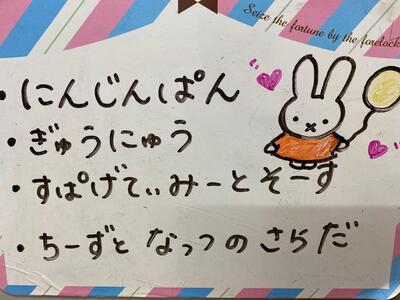 Seize the fortune by the forelock
・にんじんぱん
・ぎゅうにゅう
・すぱげてぃみーとそーす
・ちーずと なっつのさらだ